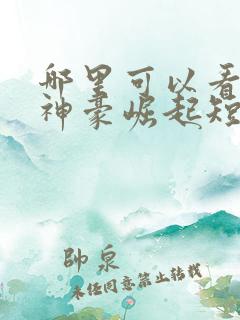 哪里可以看
神豪崛起短
帅泉
未经同意禁止转载